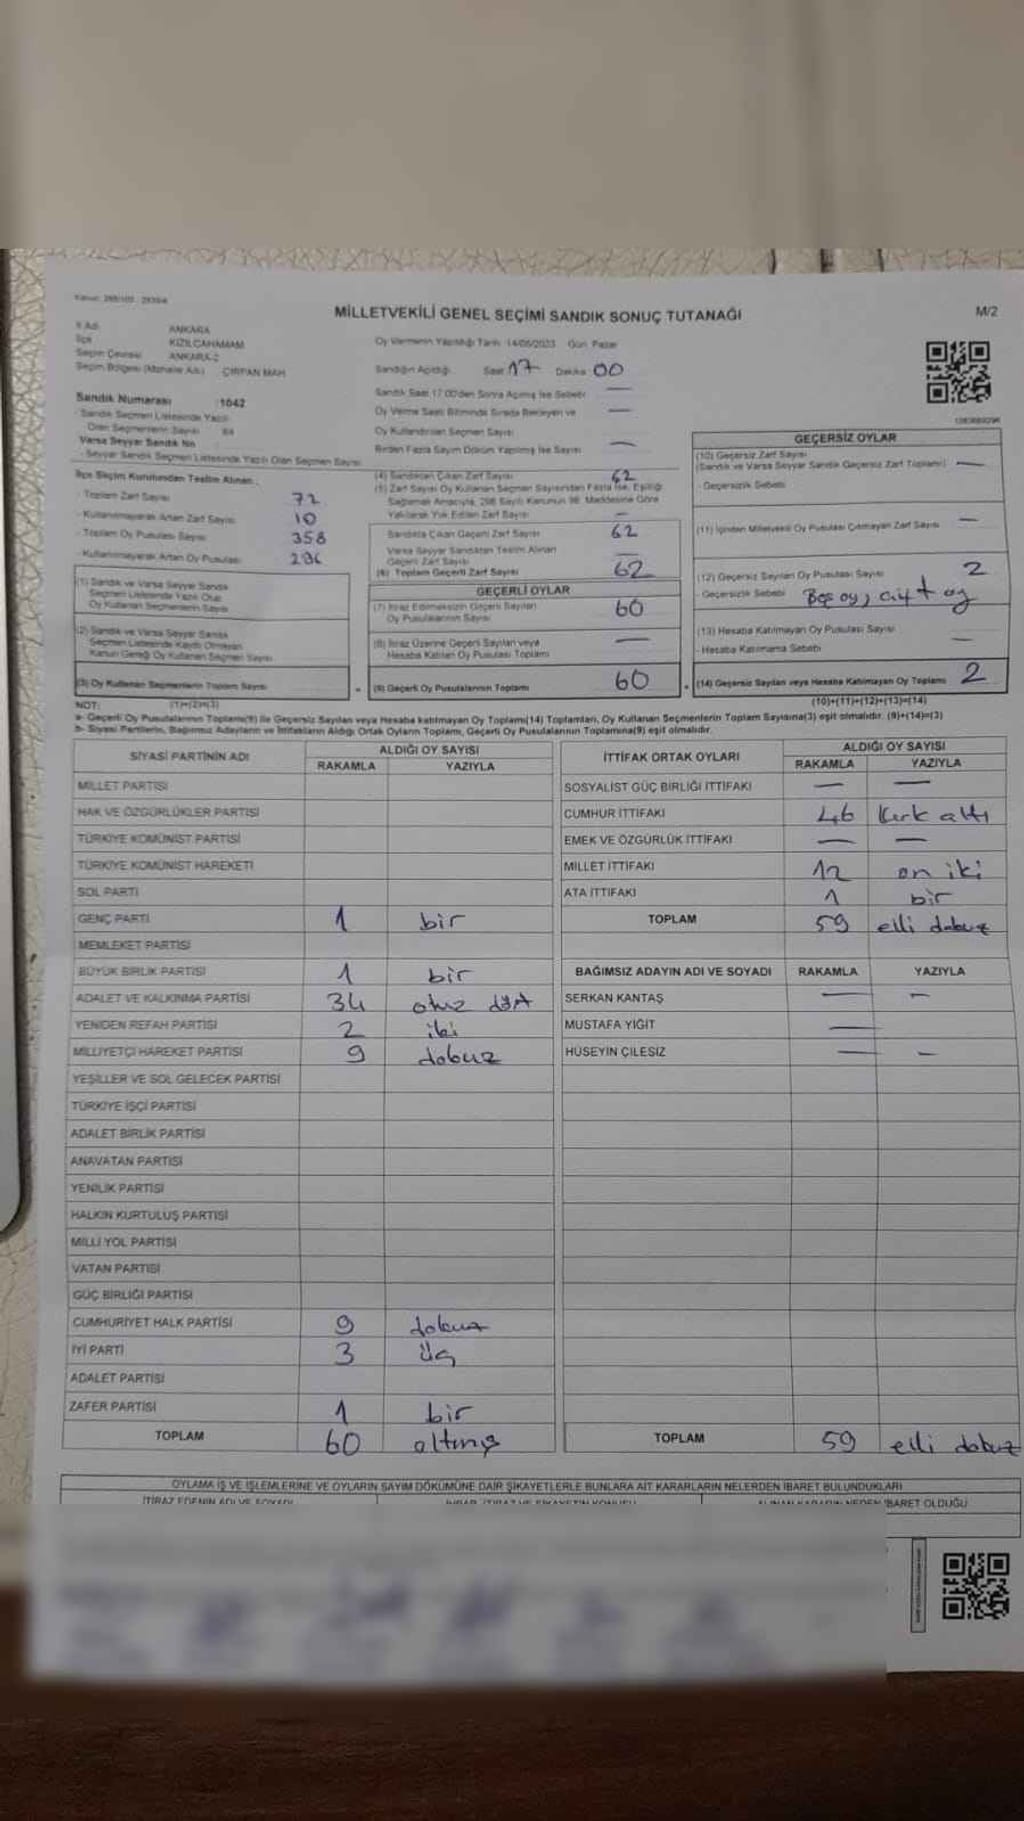 MİLLETVEKİLİ GENEL SEÇİMİ SANDIK SONUÇ TUTANAĞI
M/2
İl Adı ANKARA
İlçe KIZILCAHAMAM
Seçim Çevresi ANKARA-2
Seçim Bölgesi (Mahalle Adı) ÇIRPAN MAH
Sandık Numarası :1042
- Sandık Seçmen Listesinde Yazılı
Olan Seçmenlerin Sayısı
Varsa Seyyar Sandık No
- Seyyar Sandık Seçmen Listesinde Yazılı Olan Seçmen Sayısı
İlçe Seçim Kurulundan Teslim Alınan
- Toplam Zarf Sayısı 72
- Kullanılmayarak Artan Zarf Sayısı 10
- Toplam Oy Pusulası Sayısı 358
- Kullanılmayarak Artan Oy Pusulası 296
(1) Sandık ve Varsa Seyyar Sandık
Seçmen Listesinde Yazılı Olup
Oy Kullanan Seçmenlerin Sayısı
(2) Sandık ve Varsa Seyyar Sandık
Seçmen Listesinde Kaydı Olmayan
Kanun Gereği Oy Kullanan Seçmen Sayısı
(3) Oy Kullanan Seçmenlerin Toplam Sayısı
Oy Vermenin Yapıldığı Tarih 14/05/2023 Gün Pazar
Sandığın Açıldığı Saat 17 Dakika 00
Sandık Saat 17:00'den Sonra Açılmış İse Sebebi —
Oy Verme Saati Bitiminde Sırada Bekleyen ve —
Oy Kullandırılan Seçmen Sayısı
Birden Fazla Sayım Döküm Yapılmış İse Sayısı —
(4) Sandıktan Çıkan Zarf Sayısı 62
(5) Zarf Sayısı Oy Kullanan Seçmen Sayısından Fazla İse, Eşitliği
Sağlamak Amacıyla, 298 Sayılı Kanunun 98. Maddesine Göre
Yakılarak Yok Edilen Zarf Sayısı —
Sandıkta Çıkan Geçerli Zarf Sayısı 62
Varsa Seyyar Sandıktan Teslim Alınan
Geçerli Zarf Sayısı —
(6) Toplam Geçerli Zarf Sayısı 62
GEÇERLİ OYLAR
(7) İtiraz Edilmeksizin Geçerli Sayılan
Oy Pusulalarının Sayısı 60
(8) İtiraz Üzerine Geçerli Sayılan veya
Hesaba Katılan Oy Pusulası Toplamı —
(9) Geçerli Oy Pusulalarının Toplamı 60
GEÇERSİZ OYLAR
(10) Geçersiz Zarf Sayısı
(Sandık ve Varsa Seyyar Sandık Geçersiz Zarf Toplamı) —
- Geçersizlik Sebebi
(11) İçinden Milletvekili Oy Pusulası Çıkmayan Zarf Sayısı —
(12) Geçersiz Sayılan Oy Pusulası Sayısı 2
- Geçersizlik Sebebi Boş oy, çift oy
(13) Hesaba Katılmayan Oy Pusulası Sayısı —
- Hesaba Katılmama Sebebi
(14) Geçersiz Sayılan veya Hesaba Katılmayan Oy Toplamı 2
NOT: (1)+(2)=(3) (10)+(11)+(12)+(13)=(14)
a- Geçerli Oy Pusulalarının Toplamı(9) ile Geçersiz Sayılan veya Hesaba katılmayan Oy Toplamı(14) Toplamları, Oy Kullanan Seçmenlerin Toplam Sayısına(3) eşit olmalıdır. (9)+(14)=(3)
b- Siyasi Partilerin, Bağımsız Adayların ve İttifakların Aldığı Ortak Oyların Toplamı, Geçerli Oy Pusulalarının Toplamına(9) eşit olmalıdır.
SİYASİ PARTİNİN ADI ALDIĞI OY SAYISI
RAKAMLA YAZIYLA
MİLLET PARTİSİ
HAK VE ÖZGÜRLÜKLER PARTİSİ
TÜRKİYE KOMÜNİST PARTİSİ
TÜRKİYE KOMÜNİST HAREKETİ
SOL PARTİ
GENÇ PARTİ 1 bir
MEMLEKET PARTİSİ
BÜYÜK BİRLİK PARTİSİ 1 bir
ADALET VE KALKINMA PARTİSİ 34 otuz dört
YENİDEN REFAH PARTİSİ 2 iki
MİLLİYETÇİ HAREKET PARTİSİ 9 dokuz
YEŞİLLER VE SOL GELECEK PARTİSİ
TÜRKİYE İŞÇİ PARTİSİ
ADALET BİRLİK PARTİSİ
ANAVATAN PARTİSİ
YENİLİK PARTİSİ
HALKIN KURTULUŞ PARTİSİ
MİLLİ YOL PARTİSİ
VATAN PARTİSİ
GÜÇ BİRLİĞİ PARTİSİ
CUMHURİYET HALK PARTİSİ 9 dokuz
İYİ PARTİ 3 üç
ADALET PARTİSİ
ZAFER PARTİSİ 1 bir
TOPLAM 60 altmış
İTTİFAK ORTAK OYLARI ALDIĞI OY SAYISI
RAKAMLA YAZIYLA
SOSYALİST GÜÇ BİRLİĞİ İTTİFAKI — —
CUMHUR İTTİFAKI 46 kırk altı
EMEK VE ÖZGÜRLÜK İTTİFAKI — —
MİLLET İTTİFAKI 12 on iki
ATA İTTİFAKI 1 bir
TOPLAM 59 elli dokuz
BAĞIMSIZ ADAYIN ADI VE SOYADI RAKAMLA YAZIYLA
SERKAN KANTAŞ — —
MUSTAFA YİĞİT —
HÜSEYİN ÇİLESİZ — —
TOPLAM 59 elli dokuz
OYLAMA İŞ VE İŞLEMLERİNE VE OYLARIN SAYIM DÖKÜMÜNE DAİR ŞİKAYETLERLE BUNLARA AİT KARARLARIN NELERDEN İBARET BULUNDUKLARI
İTİRAZ EDENİN ADI VE SOYADI
NEDEN İBARET OLDUĞU